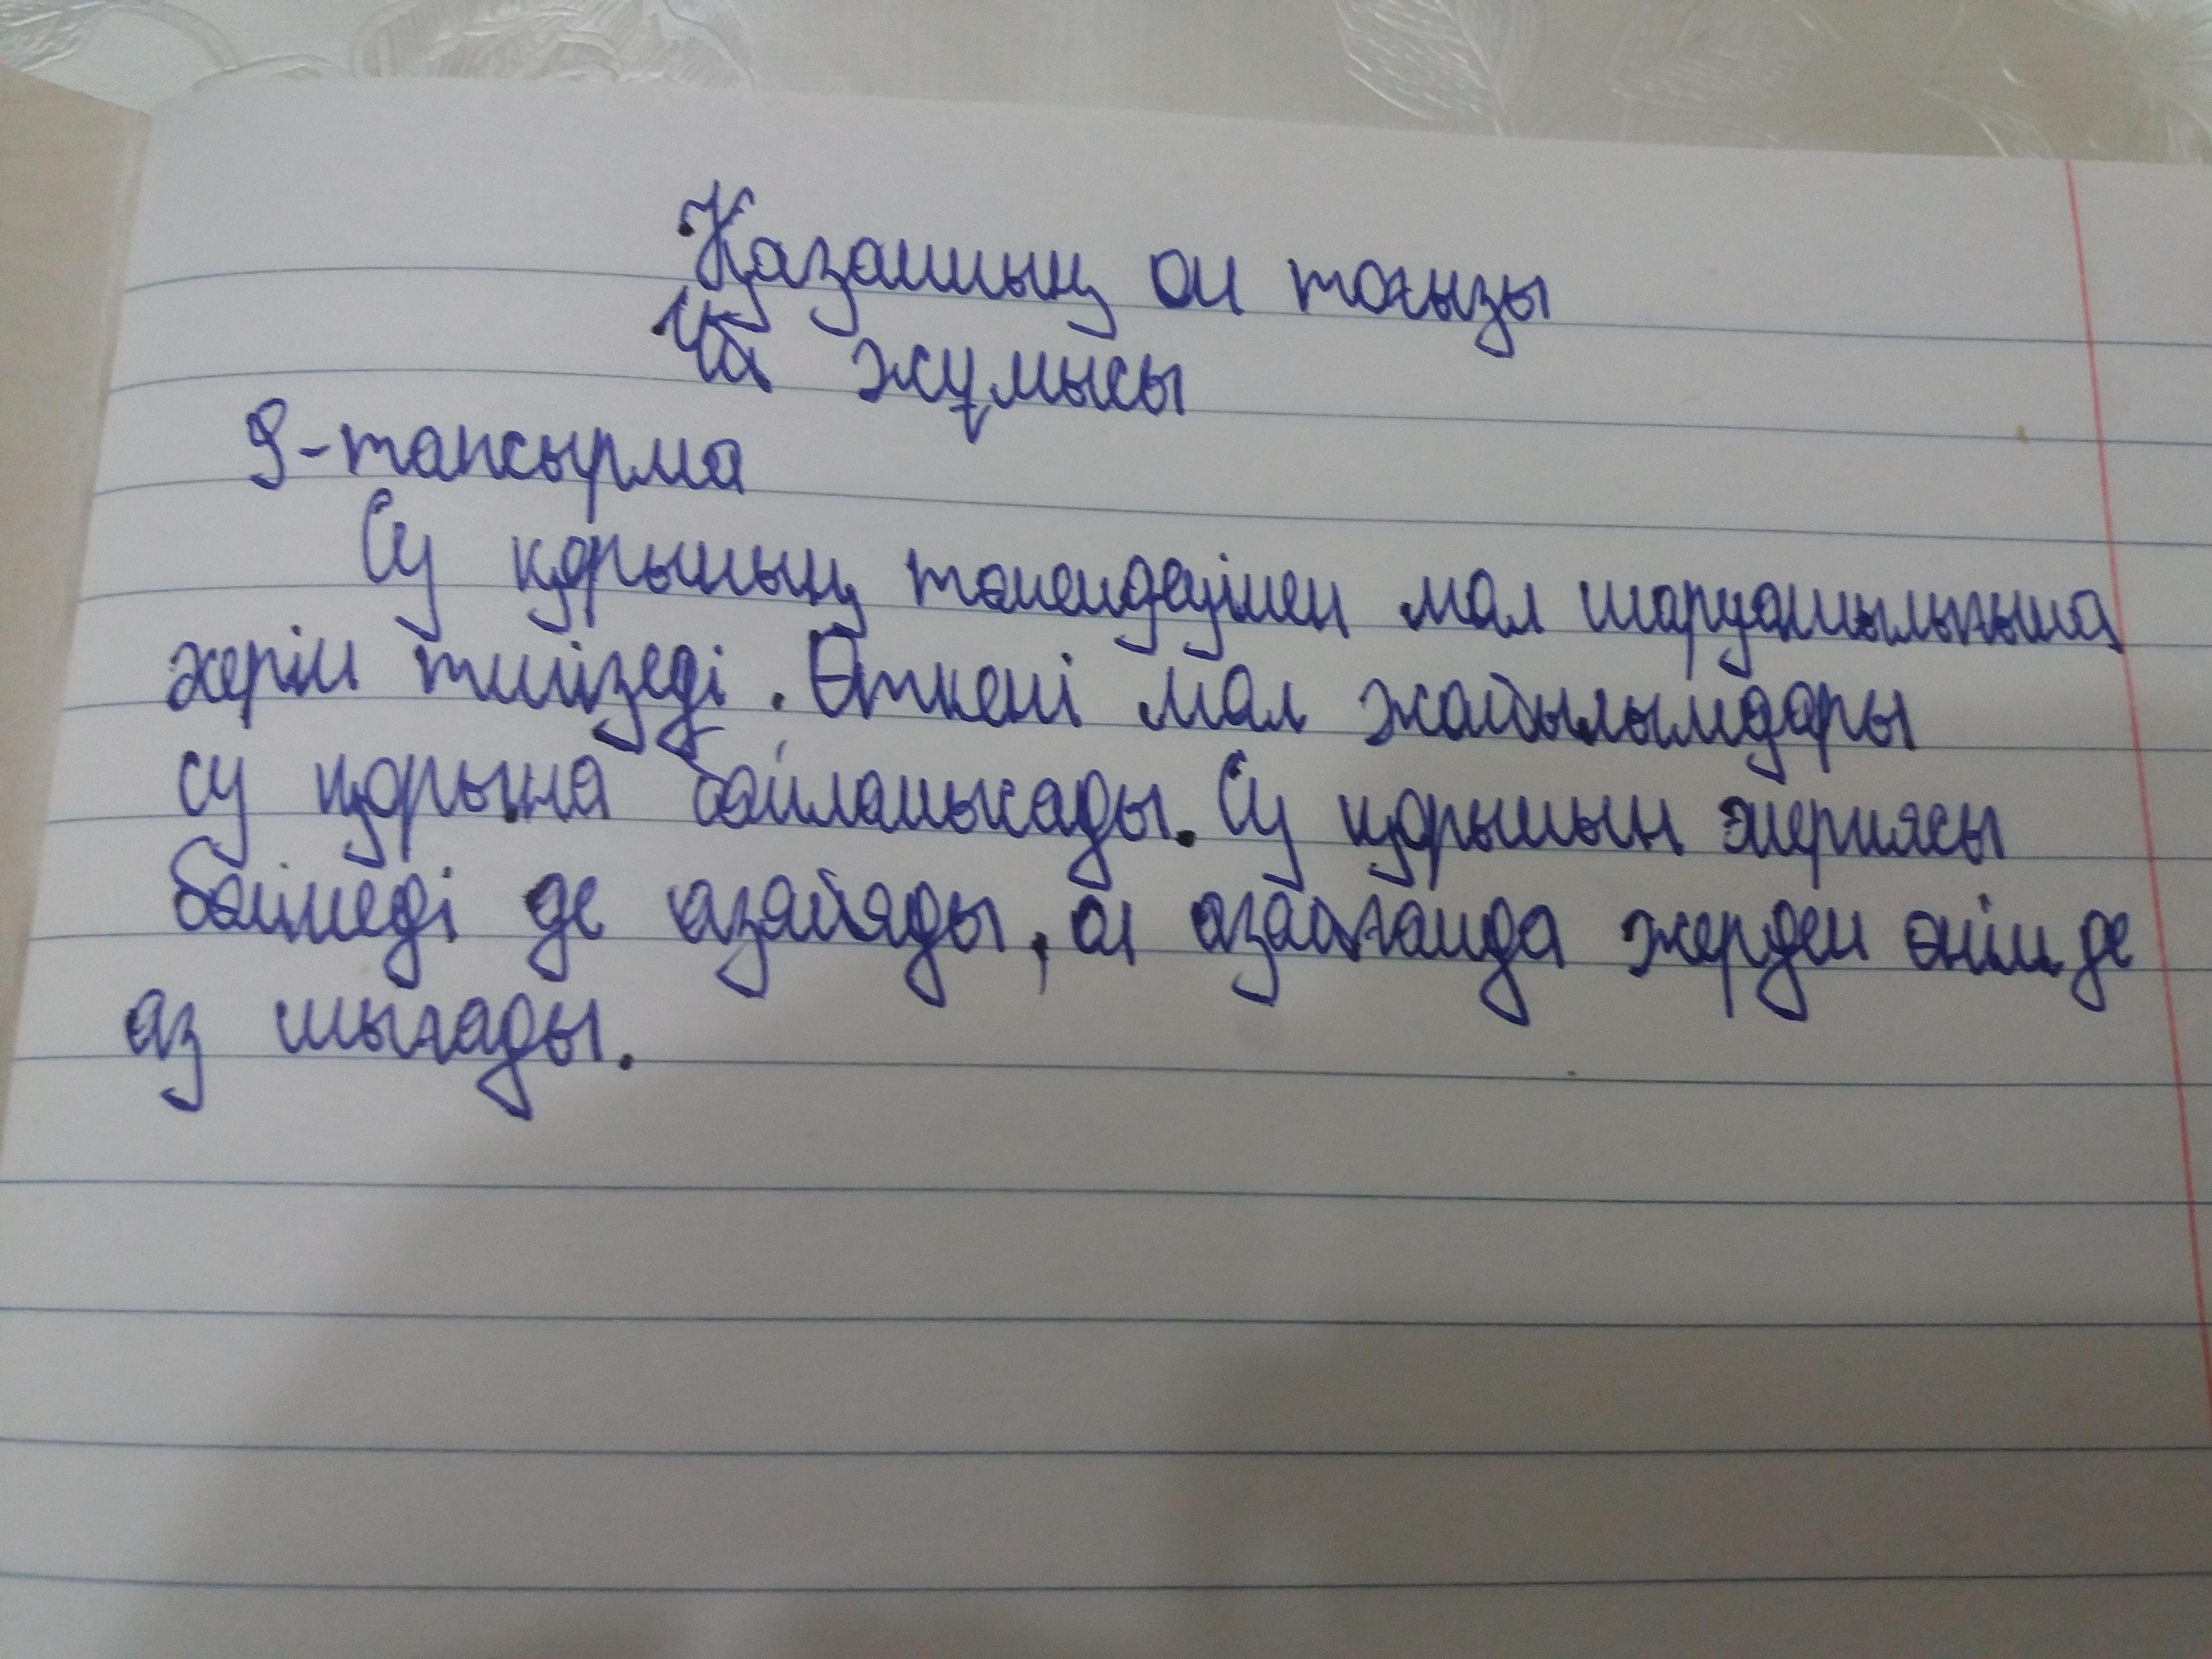 Қазанның он тоғызы
Үй жұмысы
9-тапсырма
Су қорының төмендеуімен мал шаруашылығына
жерін тигізеді. Өткені мал жайылымдары
су қорына байланысады. Су қорының энергиясы
бөлінеді де азаяды, ол азайғанда жерден өнім де
аз шығады.